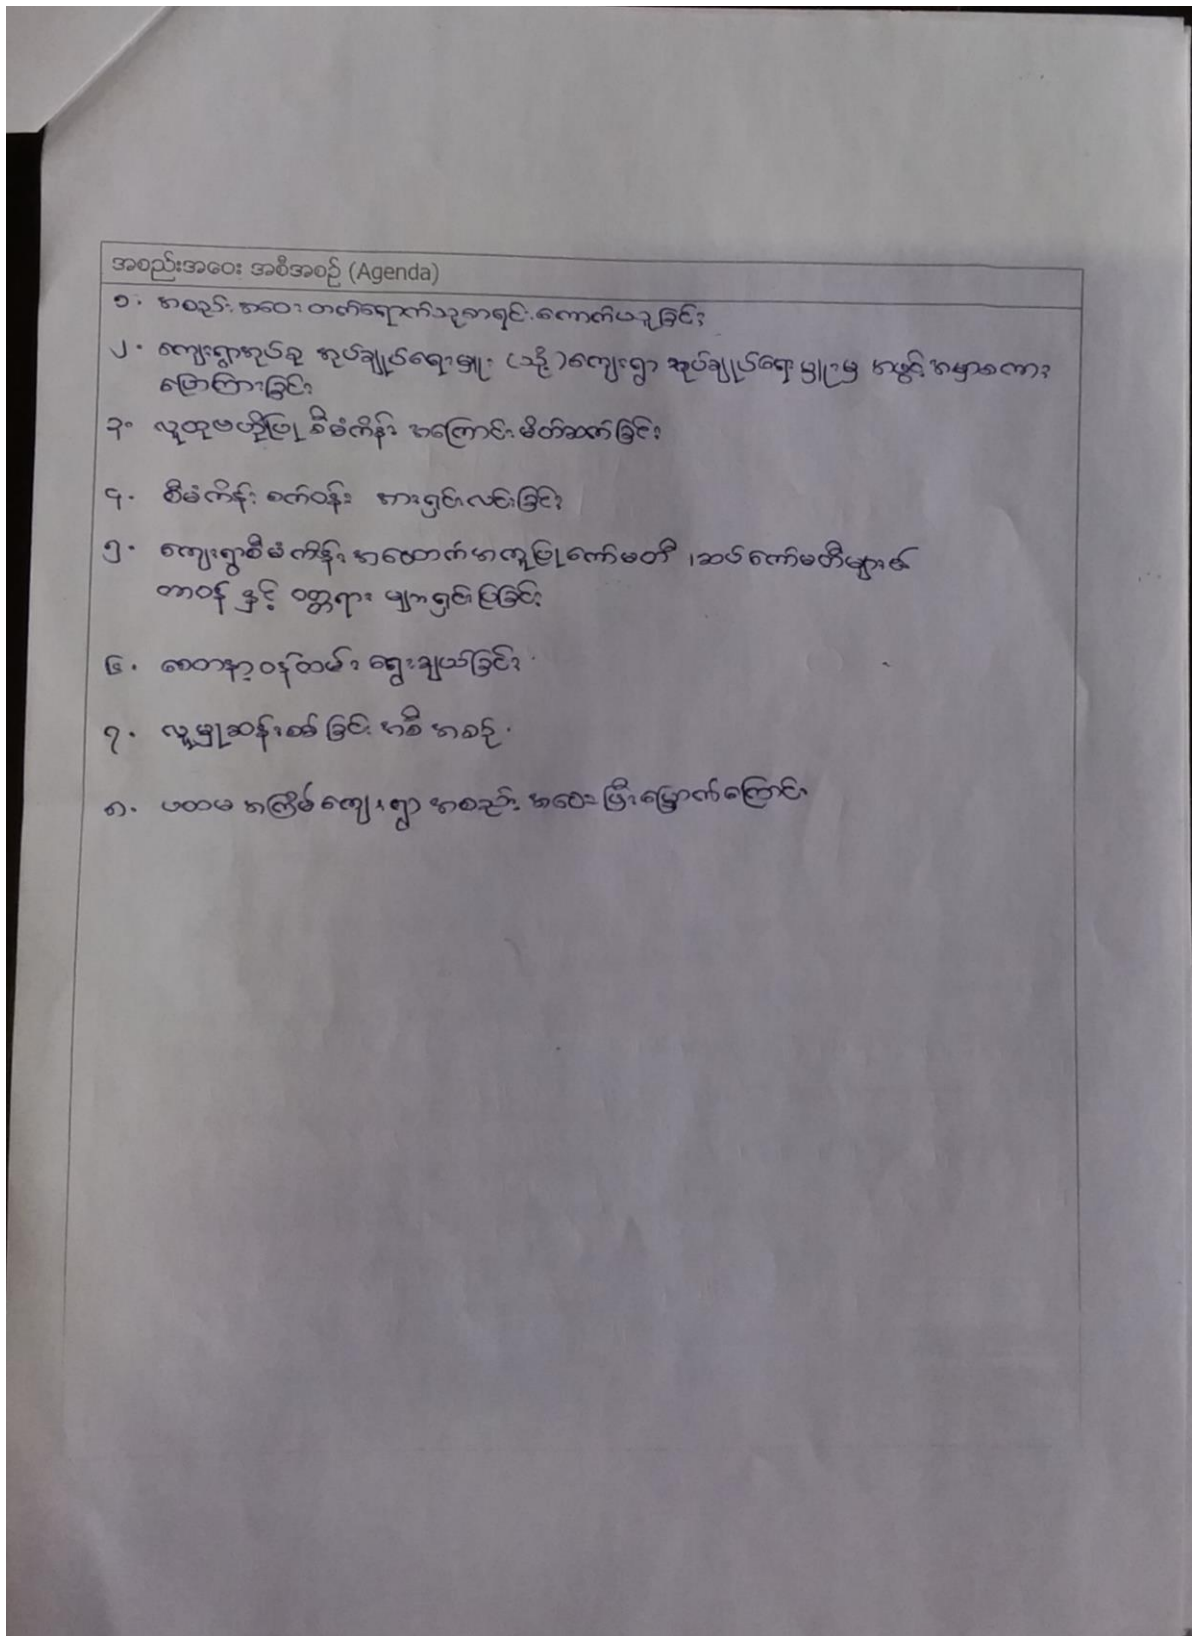 အစည်းအဝေး အစီအစဉ် (Agenda)
၁. အစည်းအဝေးတက်ရောက်သူစာရင်းကောက်ယူခြင်း
၂. ကျေးရွာအုပ်စု အုပ်ချုပ်ရေးမှူး (သို့) ကျေးရွာ အုပ်ချုပ်ရေးမှူးမှ အဖွင့်အမှာစကား
ပြောကြားခြင်း
၃. လူထုဗဟိုပြု စီမံကိန်း အကြောင်းမိတ်ဆက်ခြင်း
၄. စီမံကိန်း စက်ဝန်း အားရှင်းလင်းခြင်း
၅. ကျေးရွာစီမံကိန်း အထောက်အကူပြုကော်မတီ ၊ ဆပ်ကော်မတီများ၏
တာဝန် နှင့် ဝတ္တရား များရှင်းပြခြင်း
၆. စေတနာ့ဝန်ထမ်း ရွေးချယ်ခြင်း
၇. လူမှုဆန်းစစ်ခြင်း အစီအစဉ်
၈. ပထမအကြိမ်ကျေးရွာ အစည်းအဝေးပြီးမြောက်ကြောင်း